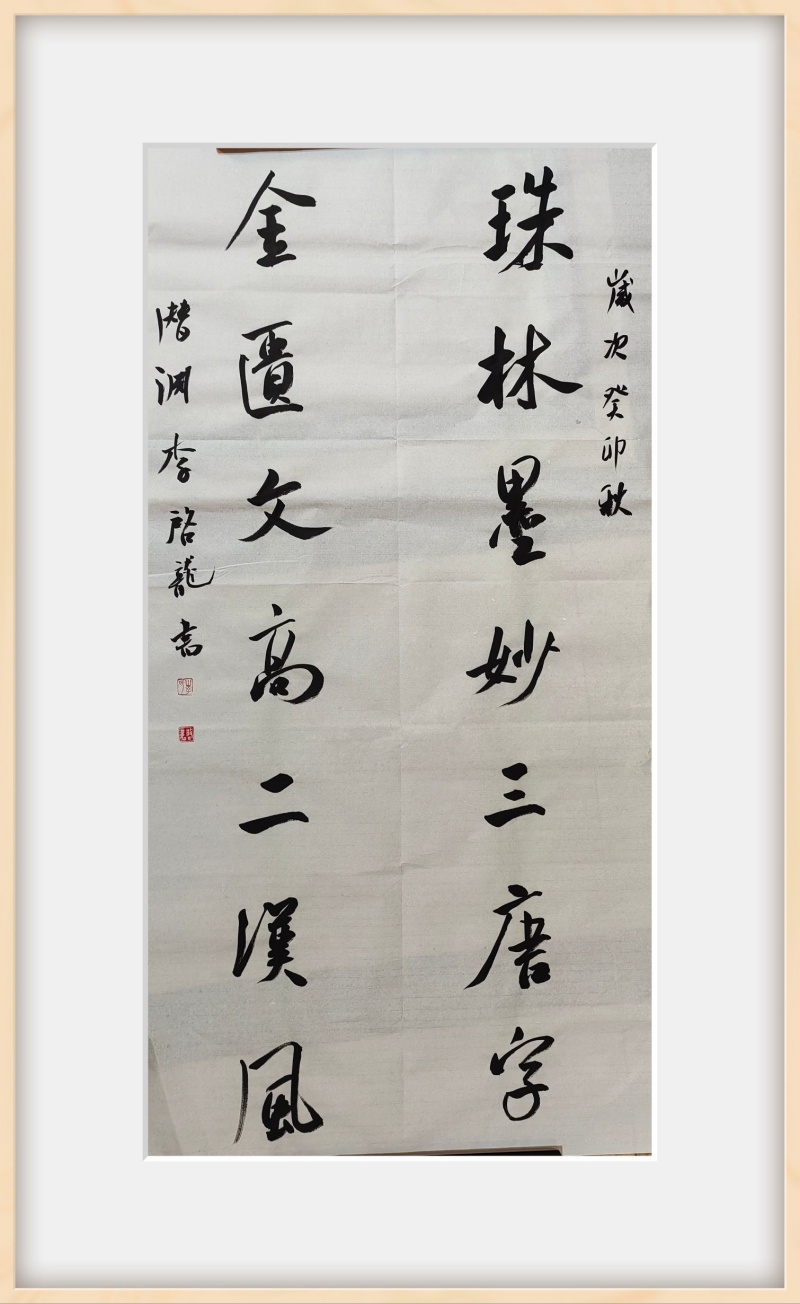 歲次癸卯秋
珠林墨妙三唐字
金匱文高二漢風
潛淵李啓龍書